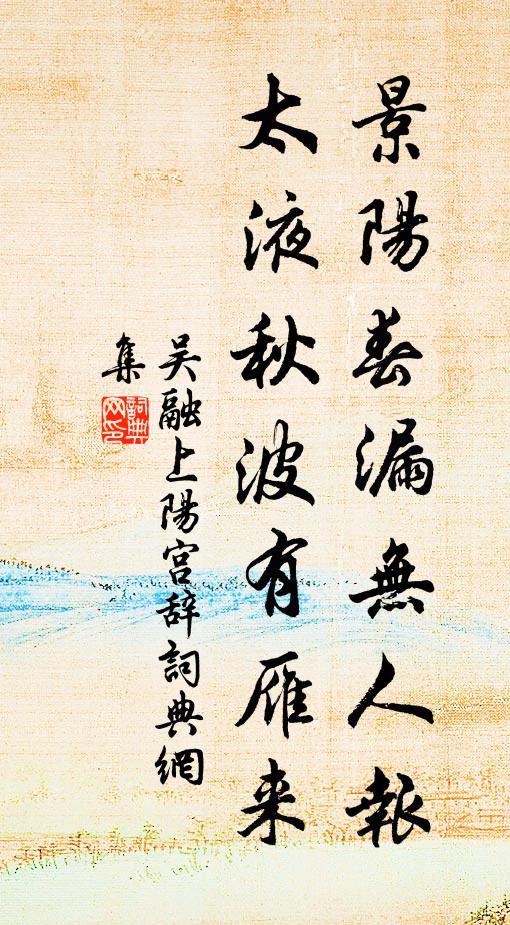 景陽春漏無人報
太液秋波有雁来
吴融上陽宫辞詞典網
集
詞典网印